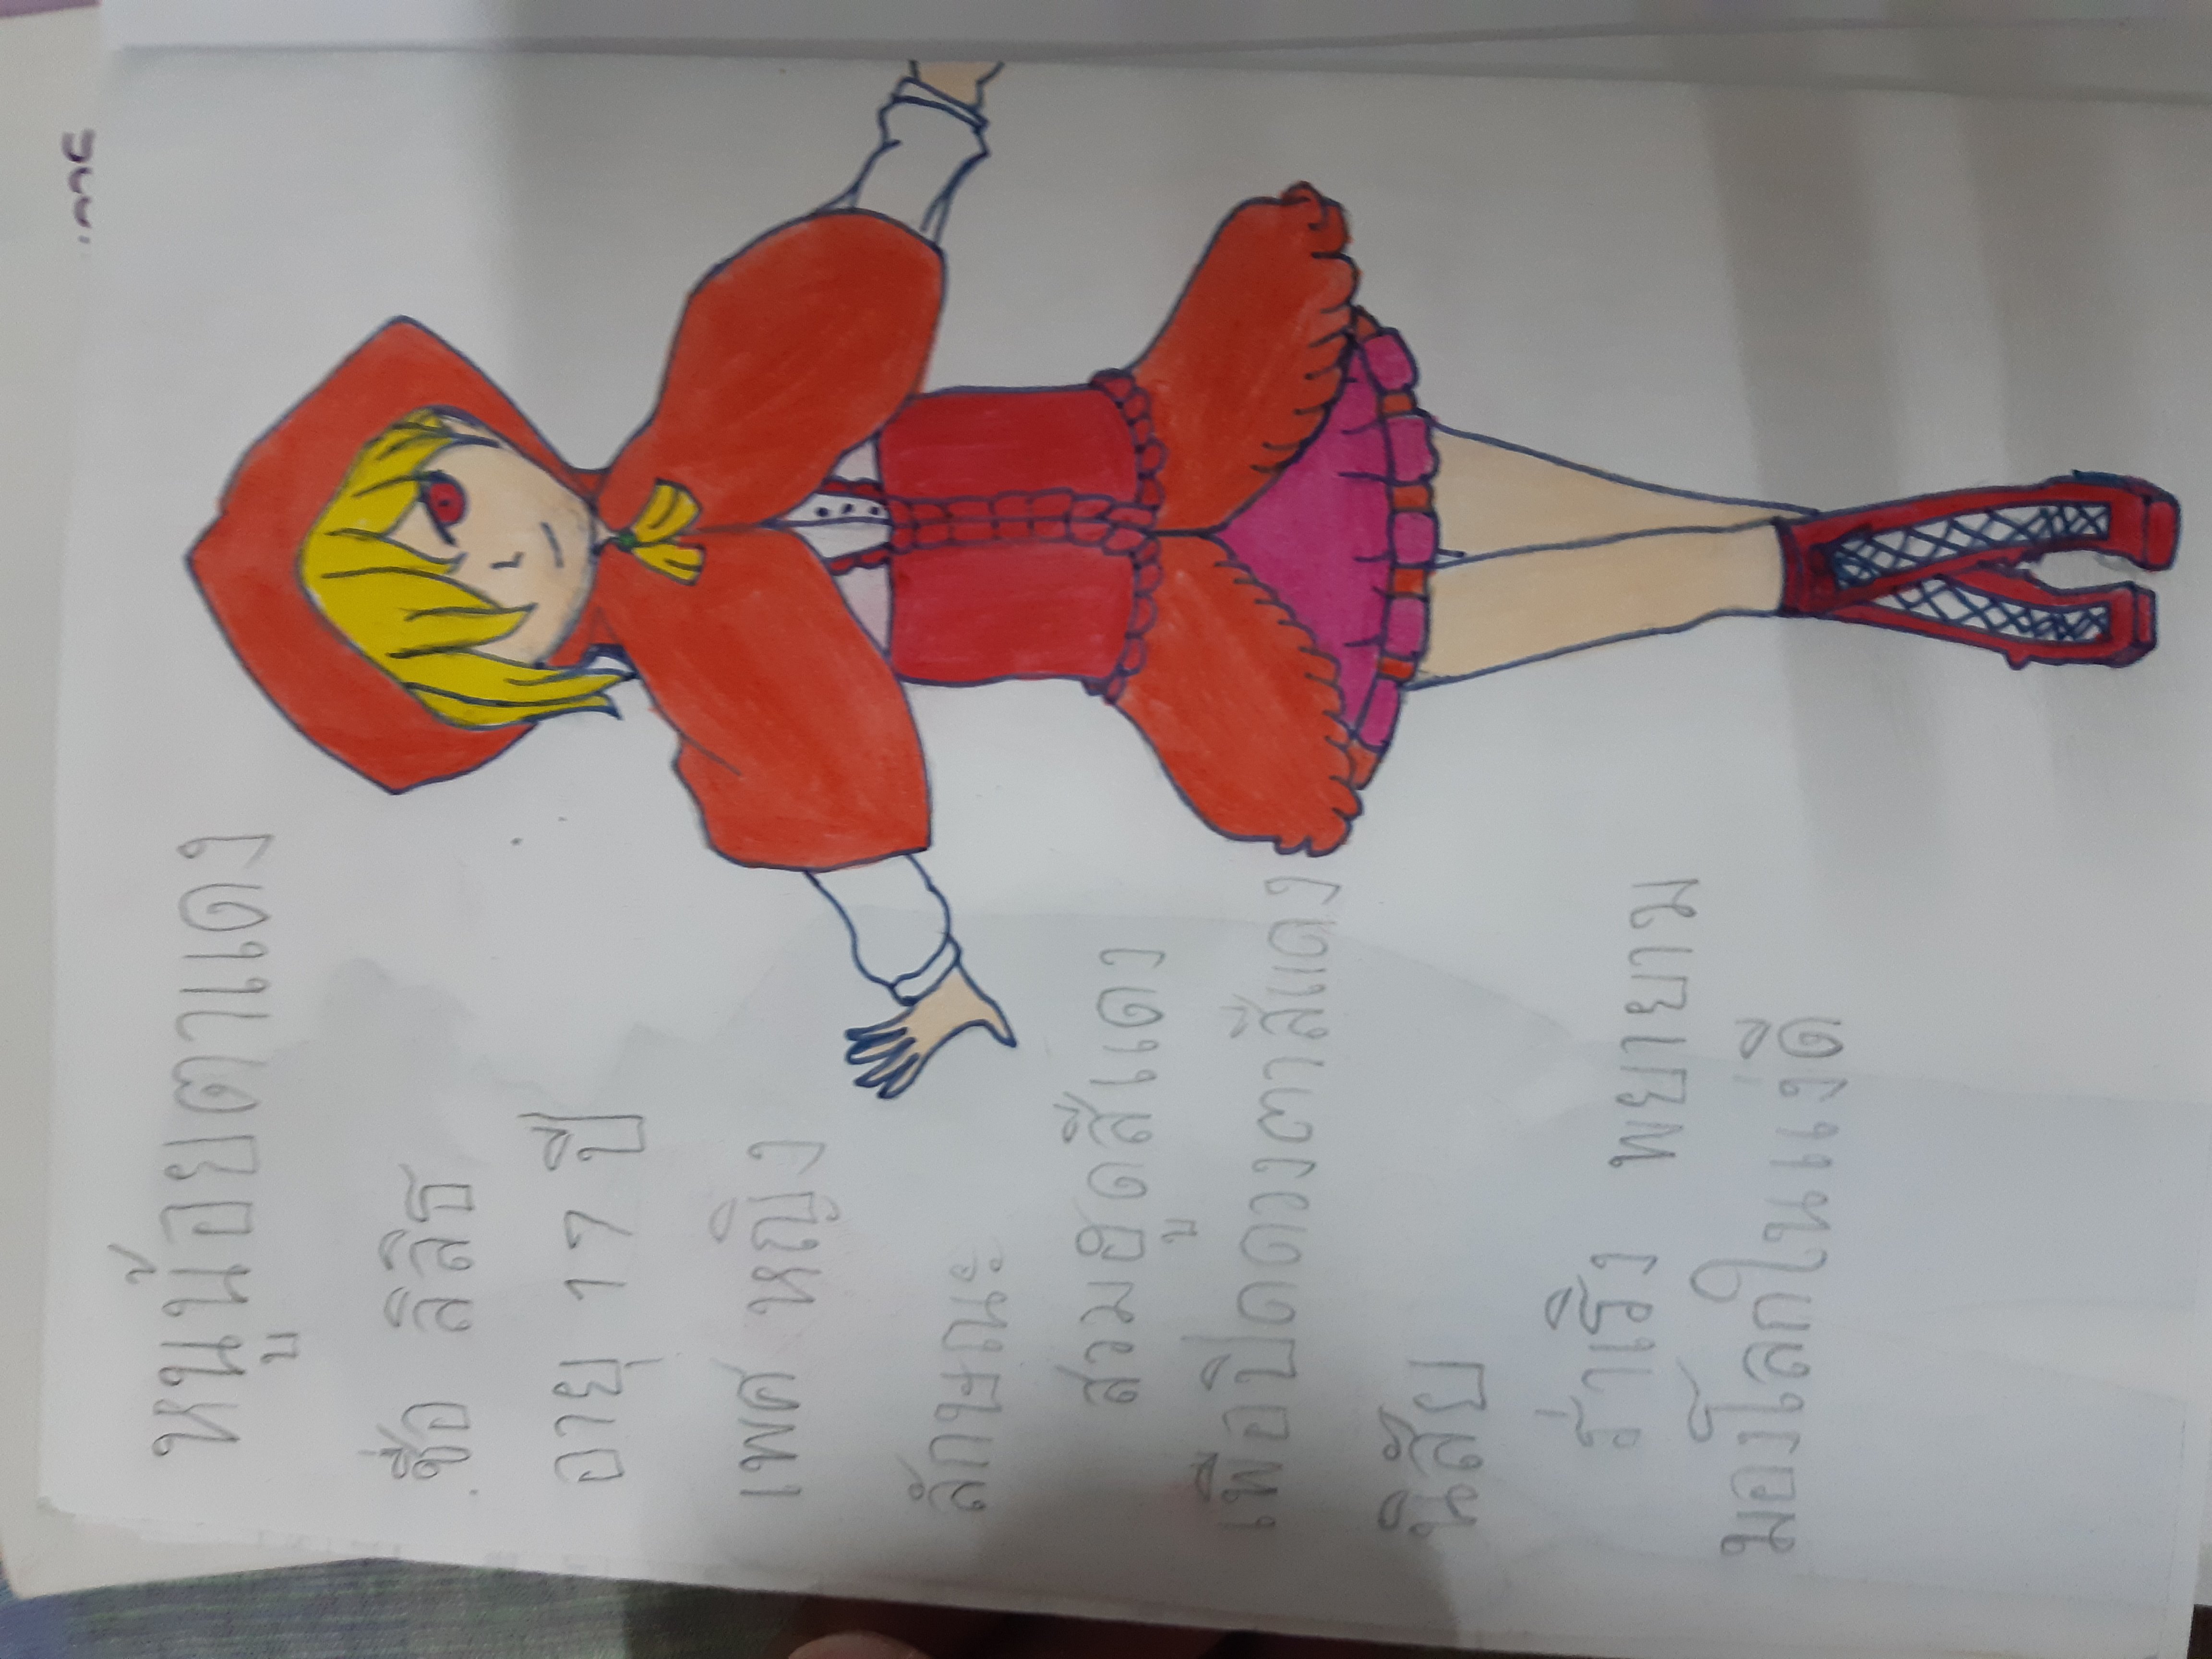 หนูน้อยตาแดง
ชื่อ ลิลิธ
อายุ 17 ปี
เพศ หญิง
ลักษณะ
สวมฮูดสีแดง
เพื่อปิดดวงตาสีแดง
นิสัย
ร่าเริง พยายาม
มองโลกในแง่ดี